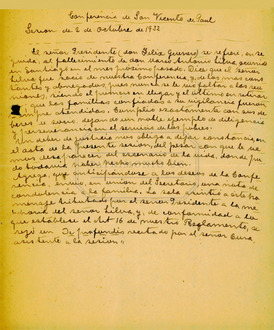 Conferencia de San Vicente de Paul
Sesion de 2 de Octubre de 1932
El señor Presidente, don Felix se refirió, en se
guida, al fallecimiento de don Mario Antonio Silva, ocurrido
en Santiago en el mes próximo pasado. Dice que el señor
Silva fué socio de nuestra Conferencia, y de los mas cons
tantes y abnegados, pues nunca se le vió faltar a las seu
niones, siendo el primero en llegar y el último en retirar
se, y que las familias confiadas a su vigilancia fueron
bien atendidas. Cumplió exactamente con sus de
beres de socio, dejando un noble ejemplo de diligencia
y perseverancia en el servicio de los pobres.
Un deber de justicia nos obliga a dejar constancia, en
el acta de la presente sesión, del pesar con que le he
mos visto desaparecer del escenario de la vida, donde pu
do todavia haber hecho mucho bien.
Agrega que anticipándose a los deseos de la Confe
rencia, envió, en union del Secretario, una nota de
condolencia a la familia. La sala asintió a este ho
menaje tributado por el señor Presidente a la me
moria del señor Silva, y, de conformidad a lo
que establece el Art 16 de nuestro Reglamento, se
rezó un De profundis recitado por el señor Cura
asistente a la sesión